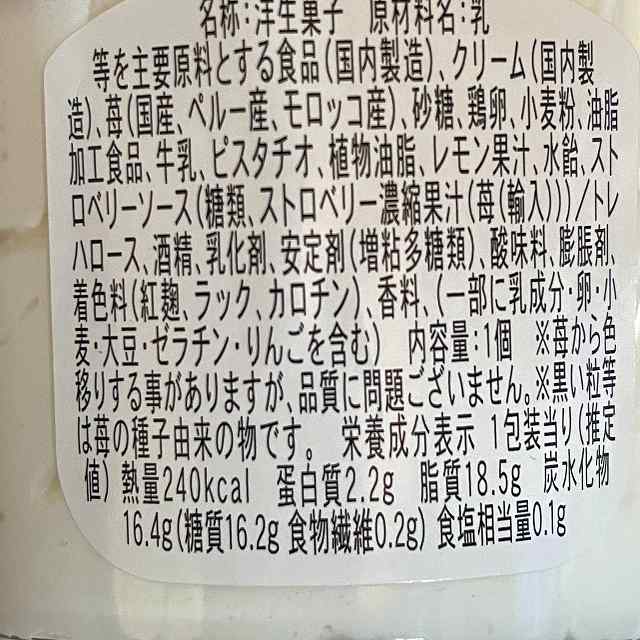 名称:洋生菓子 原材料名:乳
等を主要原料とする食品(国内製造)、クリーム(国内製
造)、苺(国産、ペルー産、モロッコ産)、砂糖、鶏卵、小麦粉、油脂
加工食品、牛乳、ピスタチオ、植物油脂、レモン果汁、水飴、スト
ロベリーソース(糖類、ストロベリー濃縮果汁(苺(輸入)))/トレ
ハロース、酒精、乳化剤、安定剤(増粘多糖類)、酸味料、膨脹剤、
着色料(紅麹、ラック、カロチン)、香料、(一部に乳成分・卵・小
麦・大豆・ゼラチン・りんごを含む) 内容量:1個 ※苺から色
移りする事がありますが、品質に問題ございません。※黒い粒等
は苺の種子由来の物です。 栄養成分表示 1包装当り(推定
値) 熱量240kcal 蛋白質2.2g 脂質18.5g 炭水化物
16.4g(糖質16.2g 食物繊維0.2g) 食塩相当量0.1g